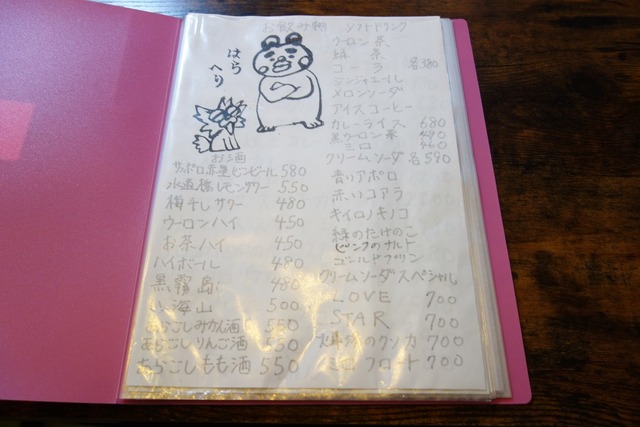 お飲み物
はら
へり
お酒
サッポロ赤星ビンビール 580
水道橋レモンサワー 550
梅干しサワー 480
ウーロンハイ 450
お茶ハイ 450
ハイボール 480
黒霧島 480
山海山 500
あらごしみかん酒 550
あらごしりんご酒 550
あらごしもも酒 550
ソフトドリンク
ウーロン茶
緑茶
コーラ 各380
ジンジャエール
メロンソーダ
アイスコーヒー
カレーライス 680
黒ウーロン茶 490
ミロ 460
クリームソーダ 各590
青りアポロ
赤いコアラ
キイロノキノコ
緑のたけのこ
ピンクのナルト
ゴールドプリン
クリームソーダスペシャル
LOVE 700
STAR 700
ミロフロート 700